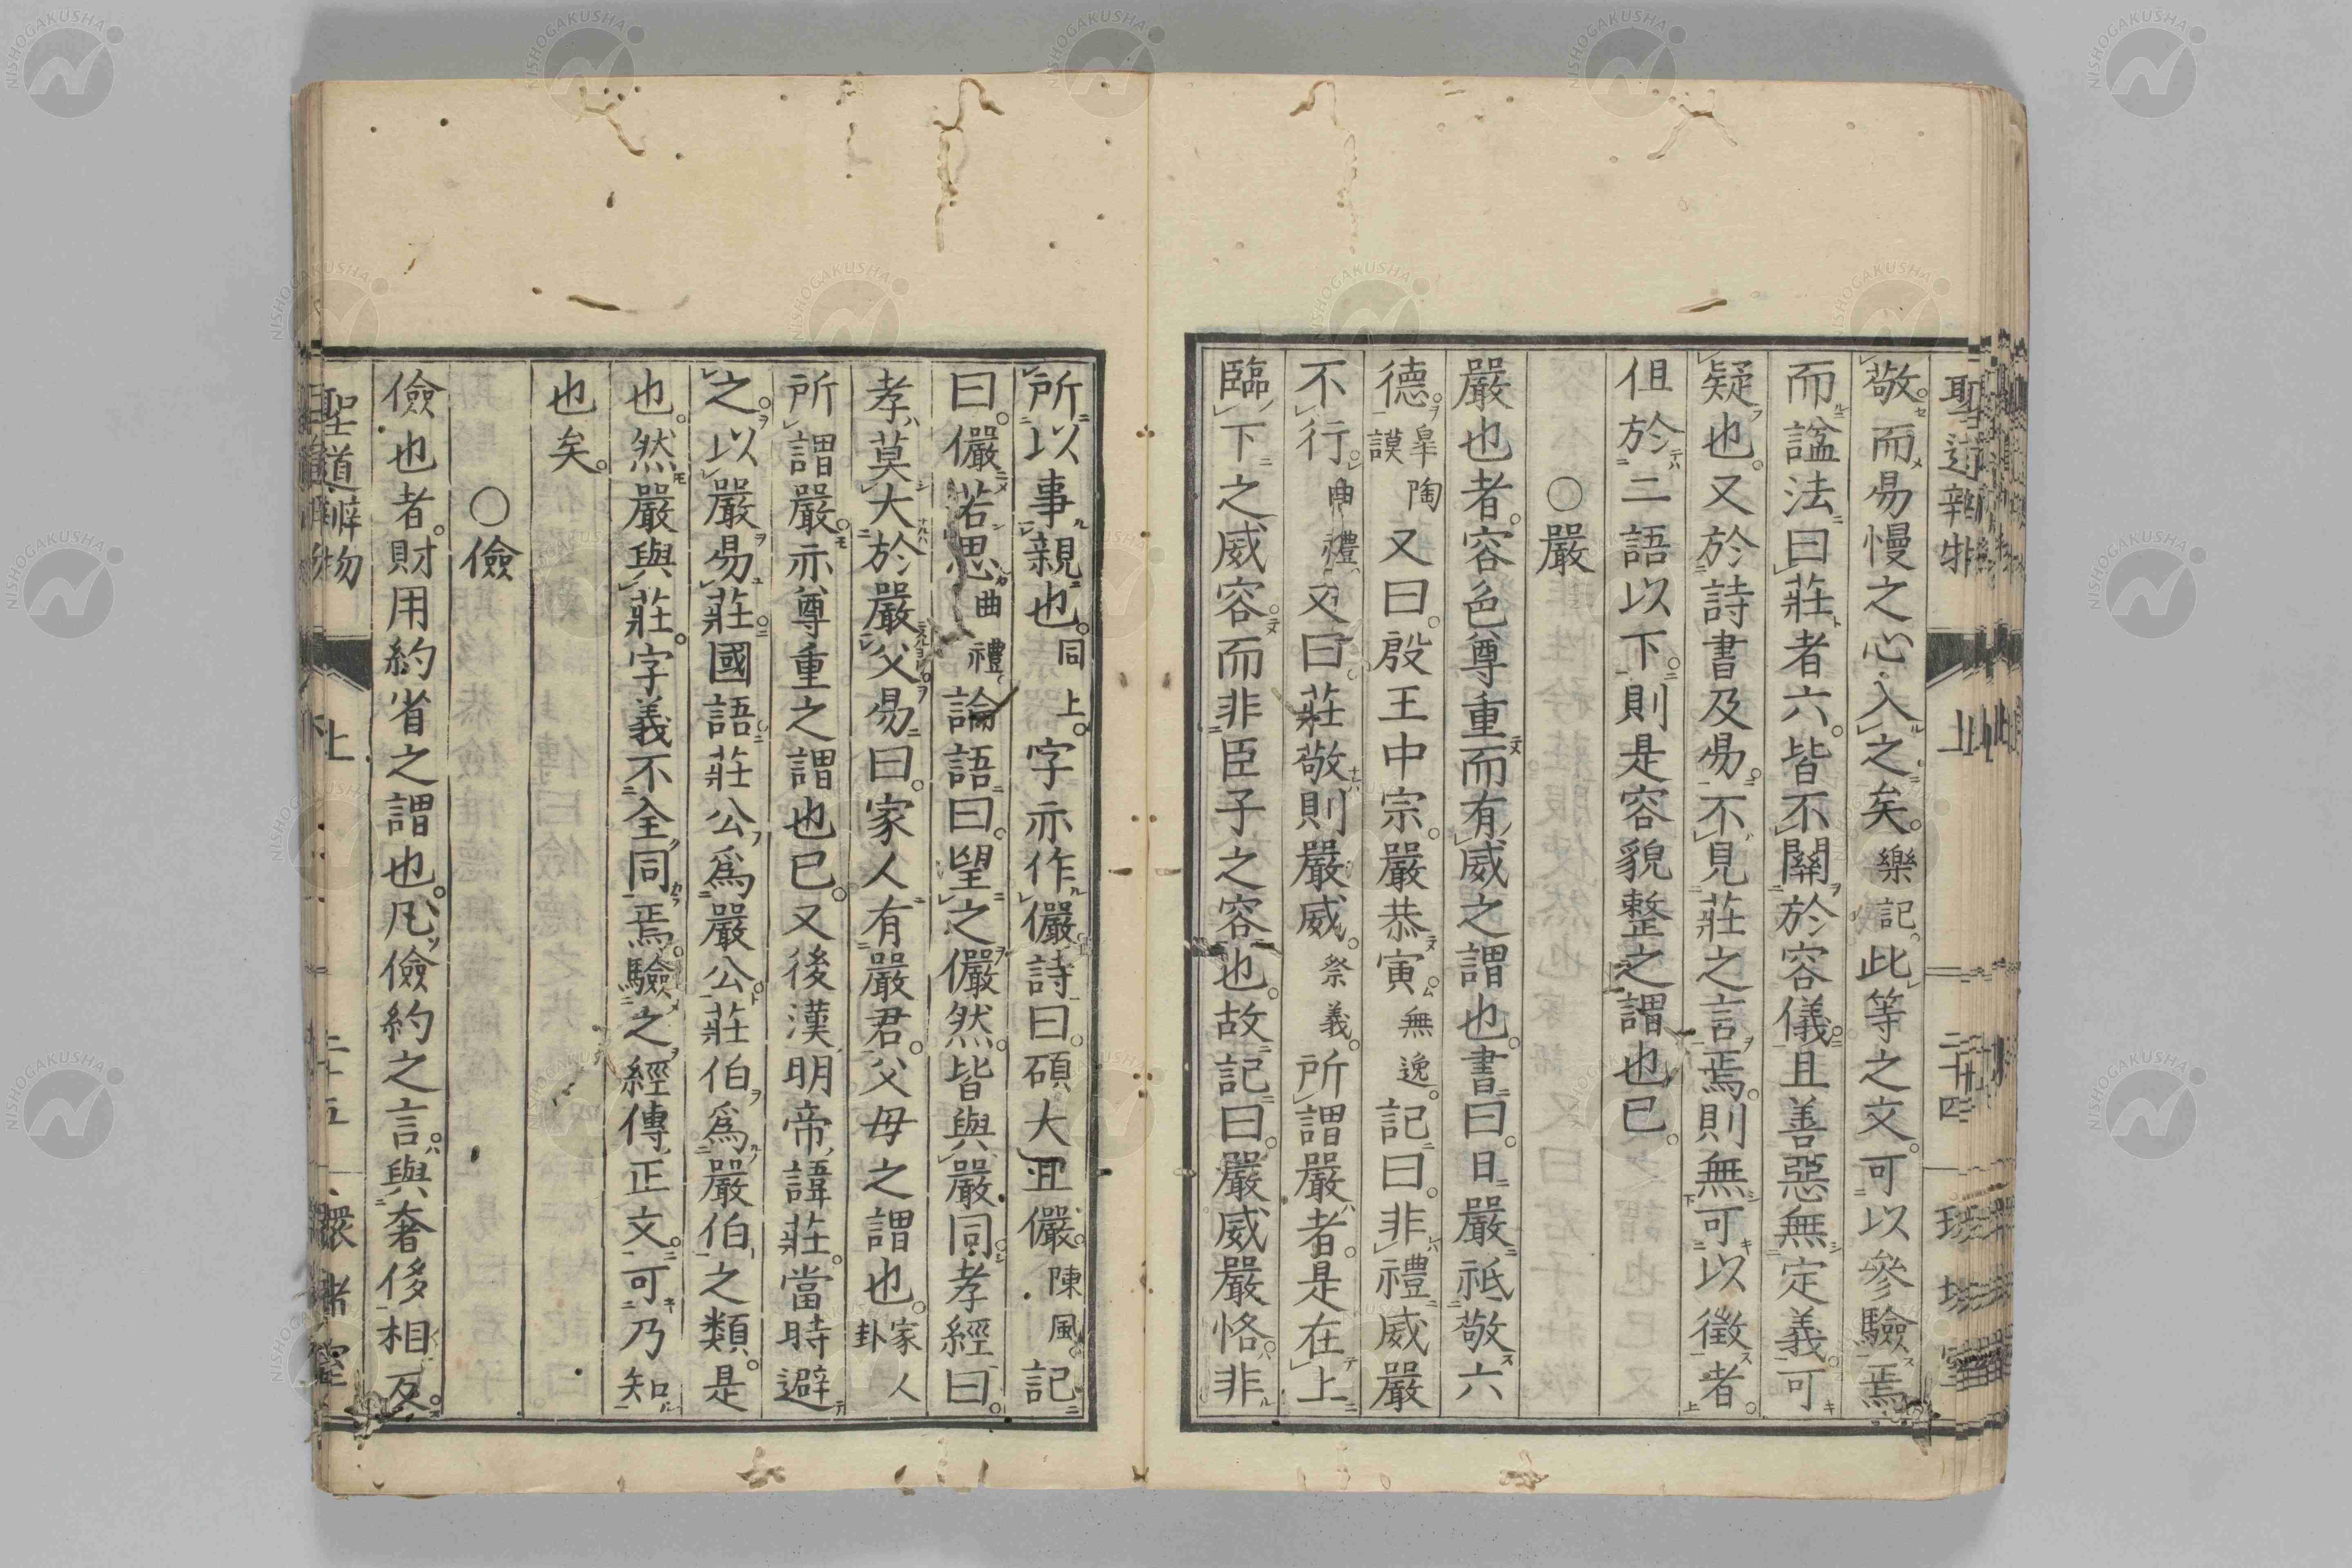 敬而易慢之心入之矣樂記此等之文可以參驗焉
而諡法曰莊者六皆不關於容儀且善惡無定義可
疑也又於詩書及易不見莊之言焉則無可以徵者
但於二語以下則是容貌整之謂也已
○嚴
嚴也者容色尊重而有威之謂也書曰日嚴祗敬六
德皐陶謨又曰殷王中宗嚴恭寅無逸記曰非禮威嚴
不行曲禮又曰莊敬則嚴威祭義所謂嚴者是在上
臨下之威容而非臣子之容也故記曰嚴威嚴恪非
所以事親也同上字亦作儼詩曰碩大且儼陳風記
曰儼若思曲禮論語曰望之儼然皆與嚴同孝經曰
孝莫大於嚴父易曰家人有嚴君父母之謂也家人卦
所謂嚴亦尊重之謂也已又後漢明帝諱莊當時避
之以嚴易莊國語莊公爲嚴公莊伯爲嚴伯之類是
也然嚴與莊字義不全同焉驗之經傳正文可乃知
也矣
○儉
儉也者財用約省之謂也凡儉約之言與奢侈相反
聖道辨物 上 二十五